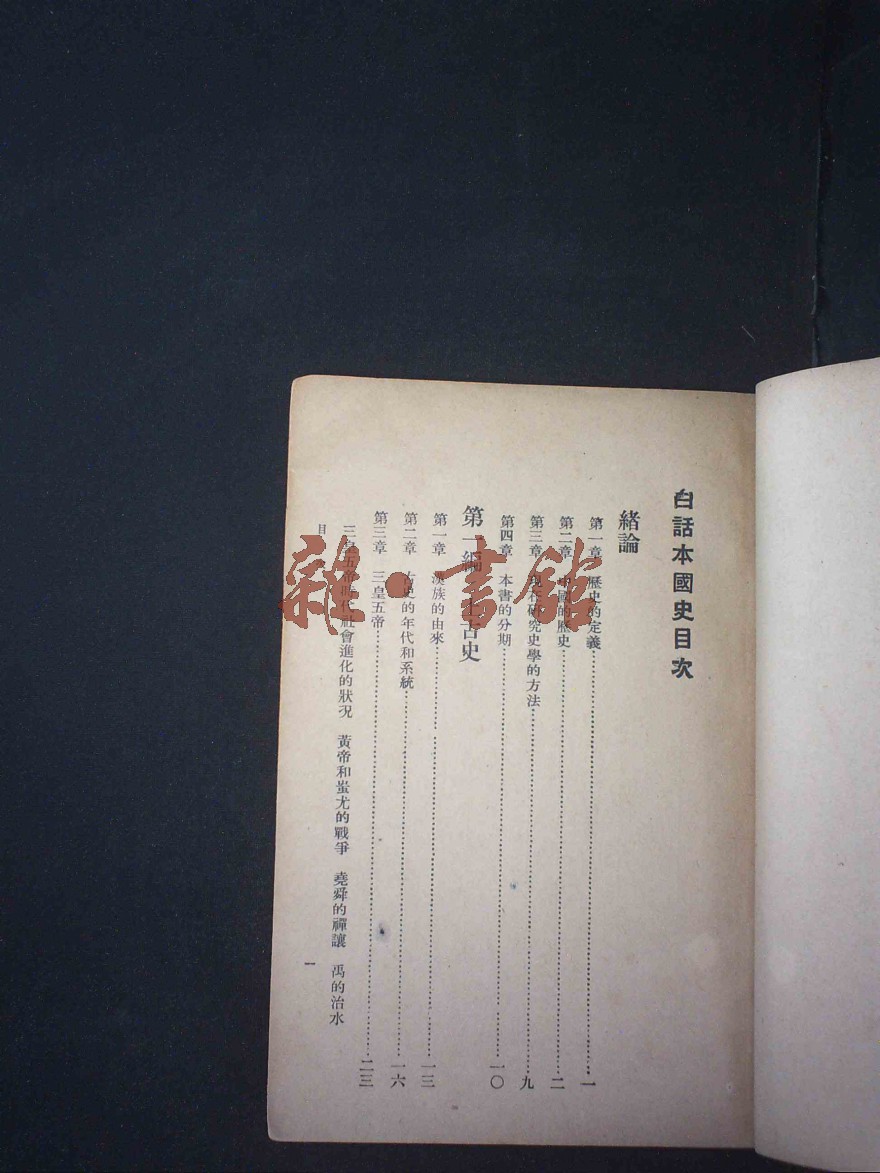 白話本國史目次
緒論
第一章 歷史的定義 一
第二章 中國的歷史 二
第三章 現在研究史學的方法 九
第四章 本書的分期 一〇
第一編 上古史
第一章 漢族的由來 一三
第二章 古史的年代和系統 一六
第三章 三皇五帝 二三
三皇五帝時代社會進化的狀況 黃帝和蚩尤的戰爭 堯舜的禪讓 禹的治水
目 一
雜·書館